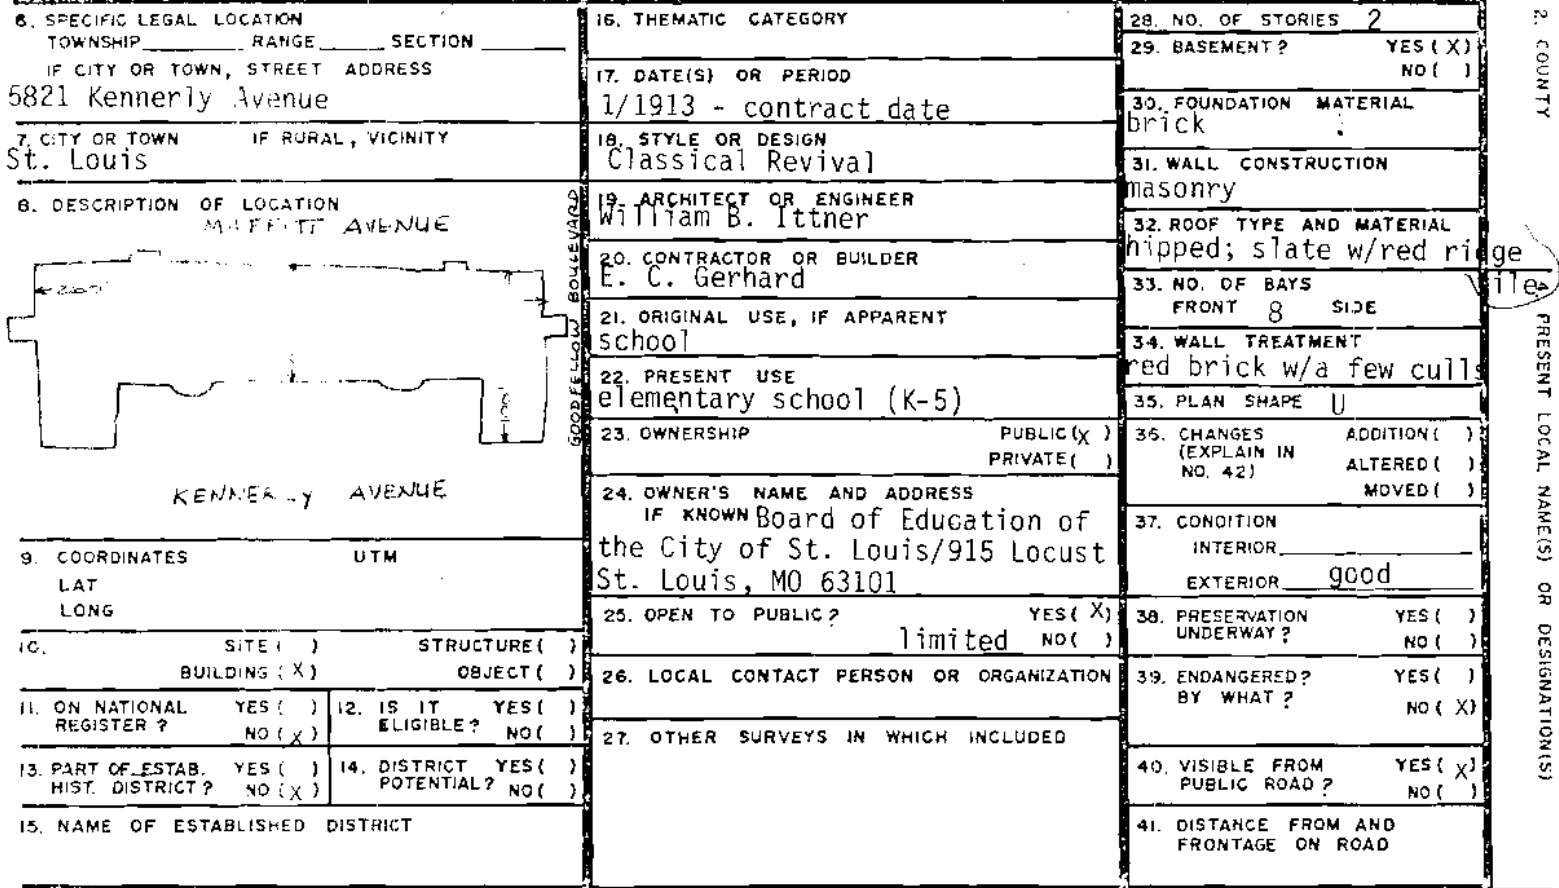 6. SPECIFIC LEGAL LOCATION
TOWNSHIP RANGE SECTION
IF CITY OR TOWN, STREET ADDRESS
5821 Kennerly Avenue
7. CITY OR TOWN IF RURAL, VICINITY
St. Louis
8. DESCRIPTION OF LOCATION
AVENUE
GOODFELLOW BOULEVARD
AVENUE
9. COORDINATES UTM
LAT
LONG
10. SITE ( ) STRUCTURE ( )
BUILDING (X) OBJECT ( )
11. ON NATIONAL REGISTER? YES ( ) NO (X)
12. IS IT ELIGIBLE? YES ( ) NO ( )
13. PART OF ESTAB. HIST. DISTRICT? YES ( ) NO (X)
14. DISTRICT POTENTIAL? YES ( ) NO ( )
15. NAME OF ESTABLISHED DISTRICT
16. THEMATIC CATEGORY
17. DATE(S) OR PERIOD
1/1913 - contract date
18. STYLE OR DESIGN
Classical Revival
19. ARCHITECT OR ENGINEER
William B. Ittner
20. CONTRACTOR OR BUILDER
E. C. Gerhard
21. ORIGINAL USE, IF APPARENT
school
22. PRESENT USE
elementary school (K-5)
23. OWNERSHIP PUBLIC (X)
PRIVATE ( )
24. OWNER'S NAME AND ADDRESS
IF KNOWN Board of Education of
the City of St. Louis/915 Locust
St. Louis, MO 63101
25. OPEN TO PUBLIC? YES (X)
limited NO ( )
26. LOCAL CONTACT PERSON OR ORGANIZATION
27. OTHER SURVEYS IN WHICH INCLUDED
28. NO. OF STORIES 2
29. BASEMENT? YES (X)
NO ( )
30. FOUNDATION MATERIAL
brick
31. WALL CONSTRUCTION
masonry
32. ROOF TYPE AND MATERIAL
hipped; slate w/red ridge
33. NO. OF BAYS
FRONT 8 SIDE
34. WALL TREATMENT
red brick w/a few culls
35. PLAN SHAPE U
36. CHANGES ADDITION ( )
(EXPLAIN IN NO. 42) ALTERED ( )
MOVED ( )
37. CONDITION
INTERIOR
EXTERIOR good
38. PRESERVATION YES ( )
UNDERWAY? NO ( )
39. ENDANGERED? YES ( )
BY WHAT? NO (X)
40. VISIBLE FROM YES (X)
PUBLIC ROAD? NO ( )
41. DISTANCE FROM AND
FRONTAGE ON ROAD
2. COUNTY
4. PRESENT LOCAL NAME(S) OR DESIGNATION(S)